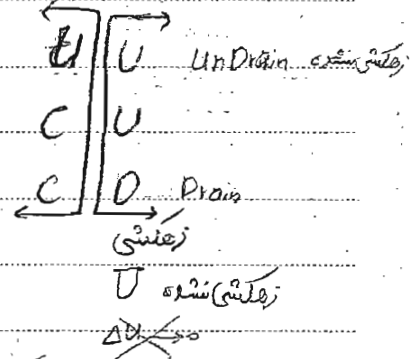 U U UnDrain زهکشی نشده
C U
C D Drain
زهکشی
Ū زهکشی نشده
ΔU → 0